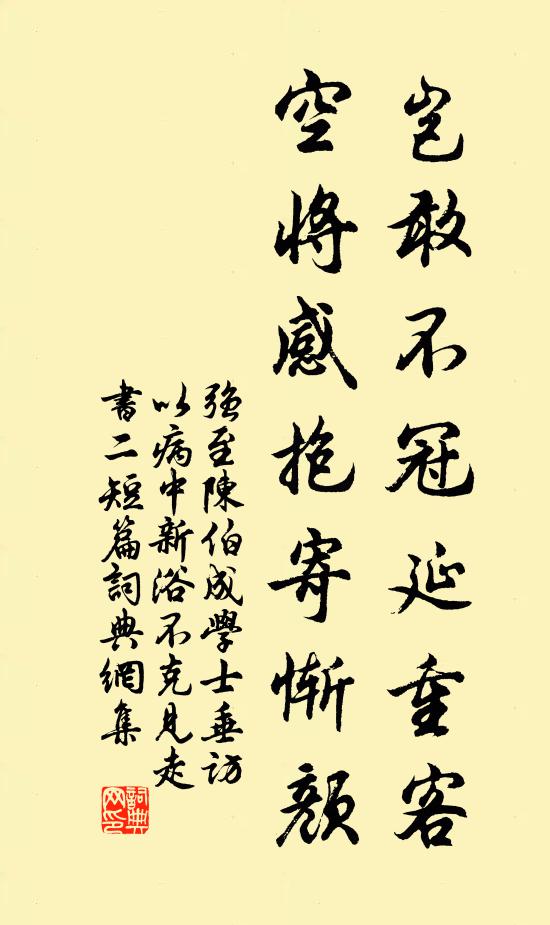 岂敢不冠延重客
空将感抱寄惭颜
強至陳伯成學士垂訪
以病中新浴不克見走
書二短篇詞典網集
詞典网印